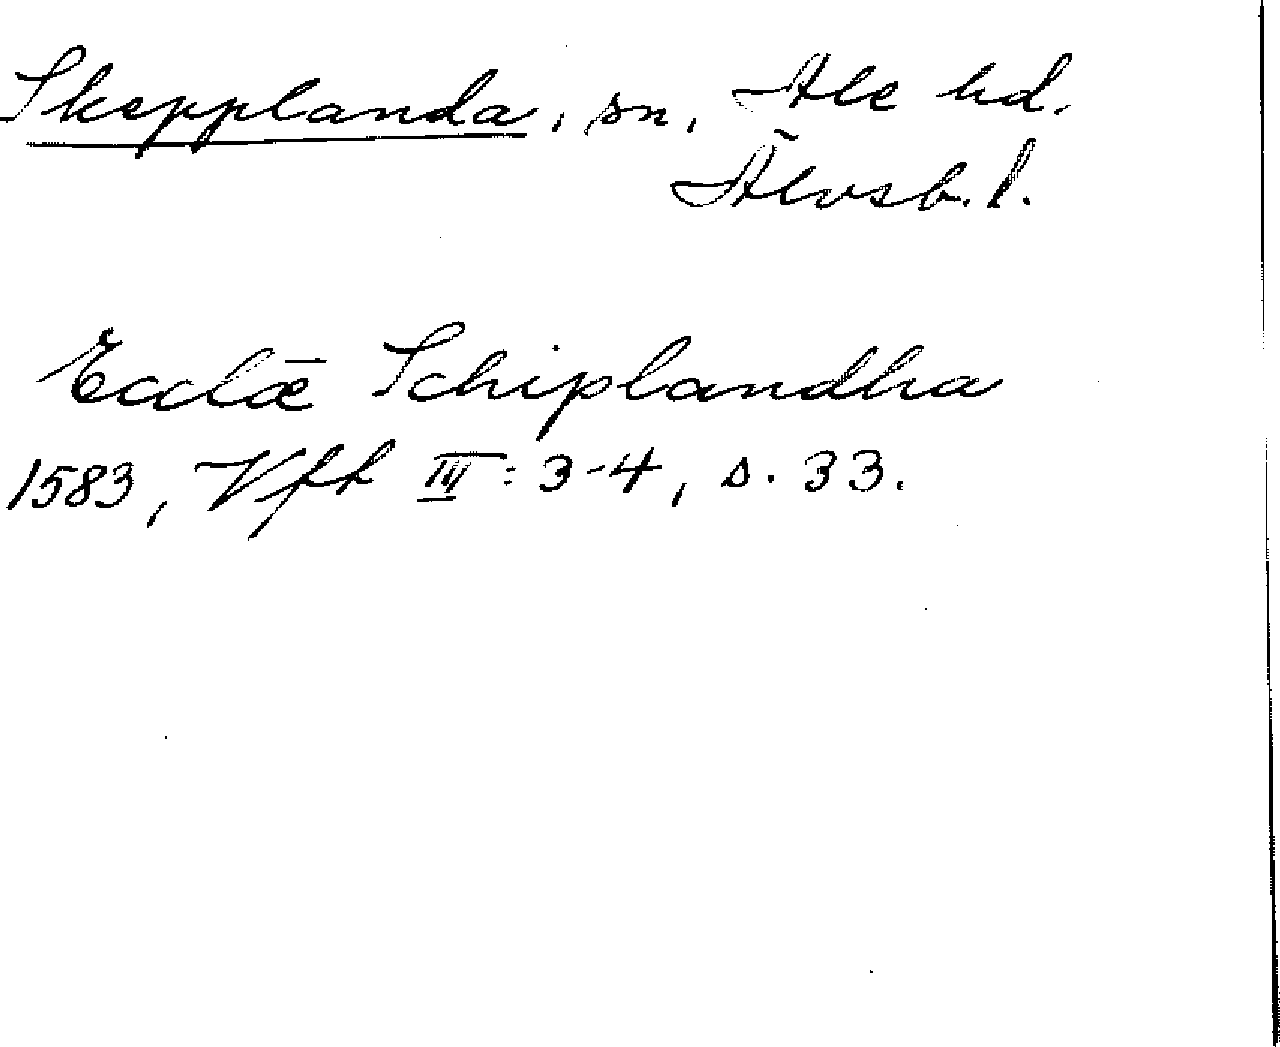 Skepplanda, sn, Ale hd.
Älvsb. l.
Ecclæ̅ Schiplandha
1583, Vft III: 3-4, s. 33.